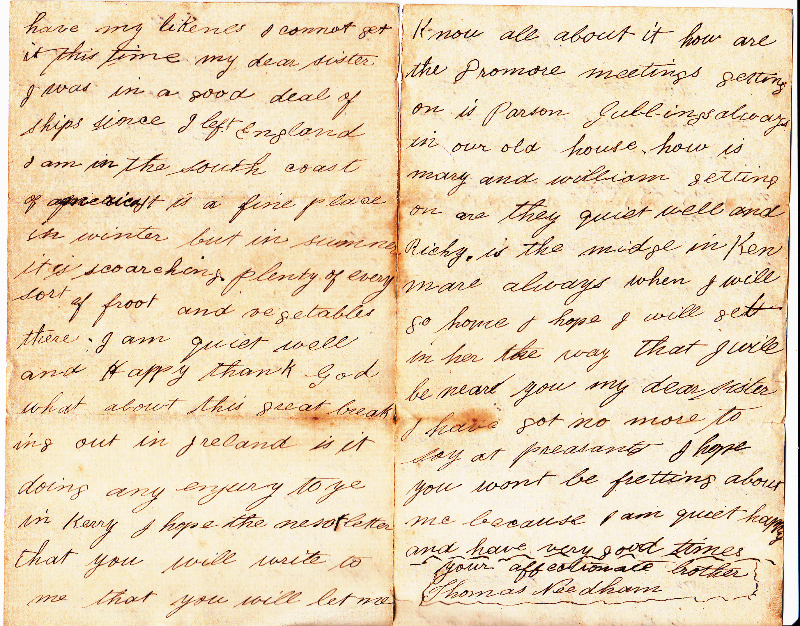 have my likenes I connot get
it this time my dear sister
I was in a good deal of
ships since I left England
I am in the south coast
of it is a fine place
in winter but in summer
it is scoarching plenty of every
sort of froot and vegetables
there. I am quiet well
and Happy thank God
what about this great break
ing out in Ireland is it
doing any enjury to ye
in Kerry I hope the next letter
that you will write to
me that you will let me
Know all about it how are
the Dromore meetings getting
on is Parson always
in our old house. how is
mary and william getting
on are they quiet well and
Richy. is the midge in Ken
mare always when I will
go home I hope I will get
in her the way that I will
be near you my dear sister
I have got no more to
say at preasant I hope
you wont be fretting about
me because I am quiet happy
and have very good times
your affectionate brother
Thomas Needham